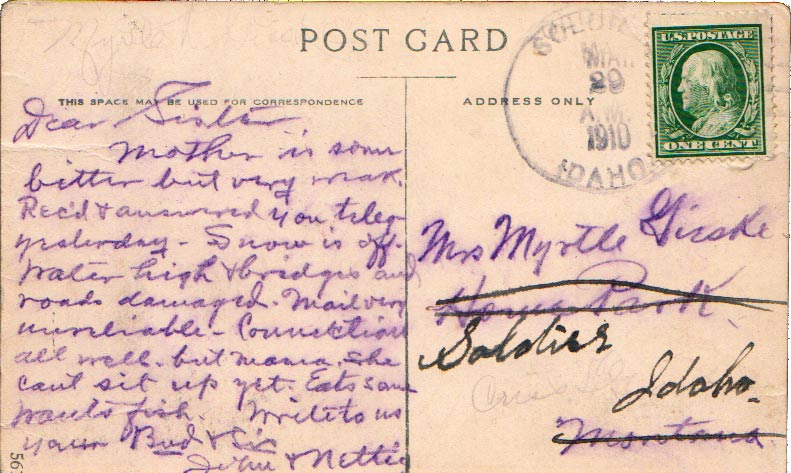 POST CARD
THIS SPACE MAY BE USED FOR CORRESPONDENCE
ADDRESS ONLY
Dear Sister
Mother is some
bitter but very weak.
Rec'd & answered you teleg
yesterday - Snow is off.
Water high & bridges and
roads damaged. Mail very
unreliable - Connections
all well. but mama. She
can't sit up yet. Eats some
wants fish. Write to us
your Bud & Sis
John & Nettie
MAR
29
A.M.
1910
IDAHO
U.S. POSTAGE
ONE CENT
Mrs Myrtle Gieske
Park
Soldier
Idaho.
Montana